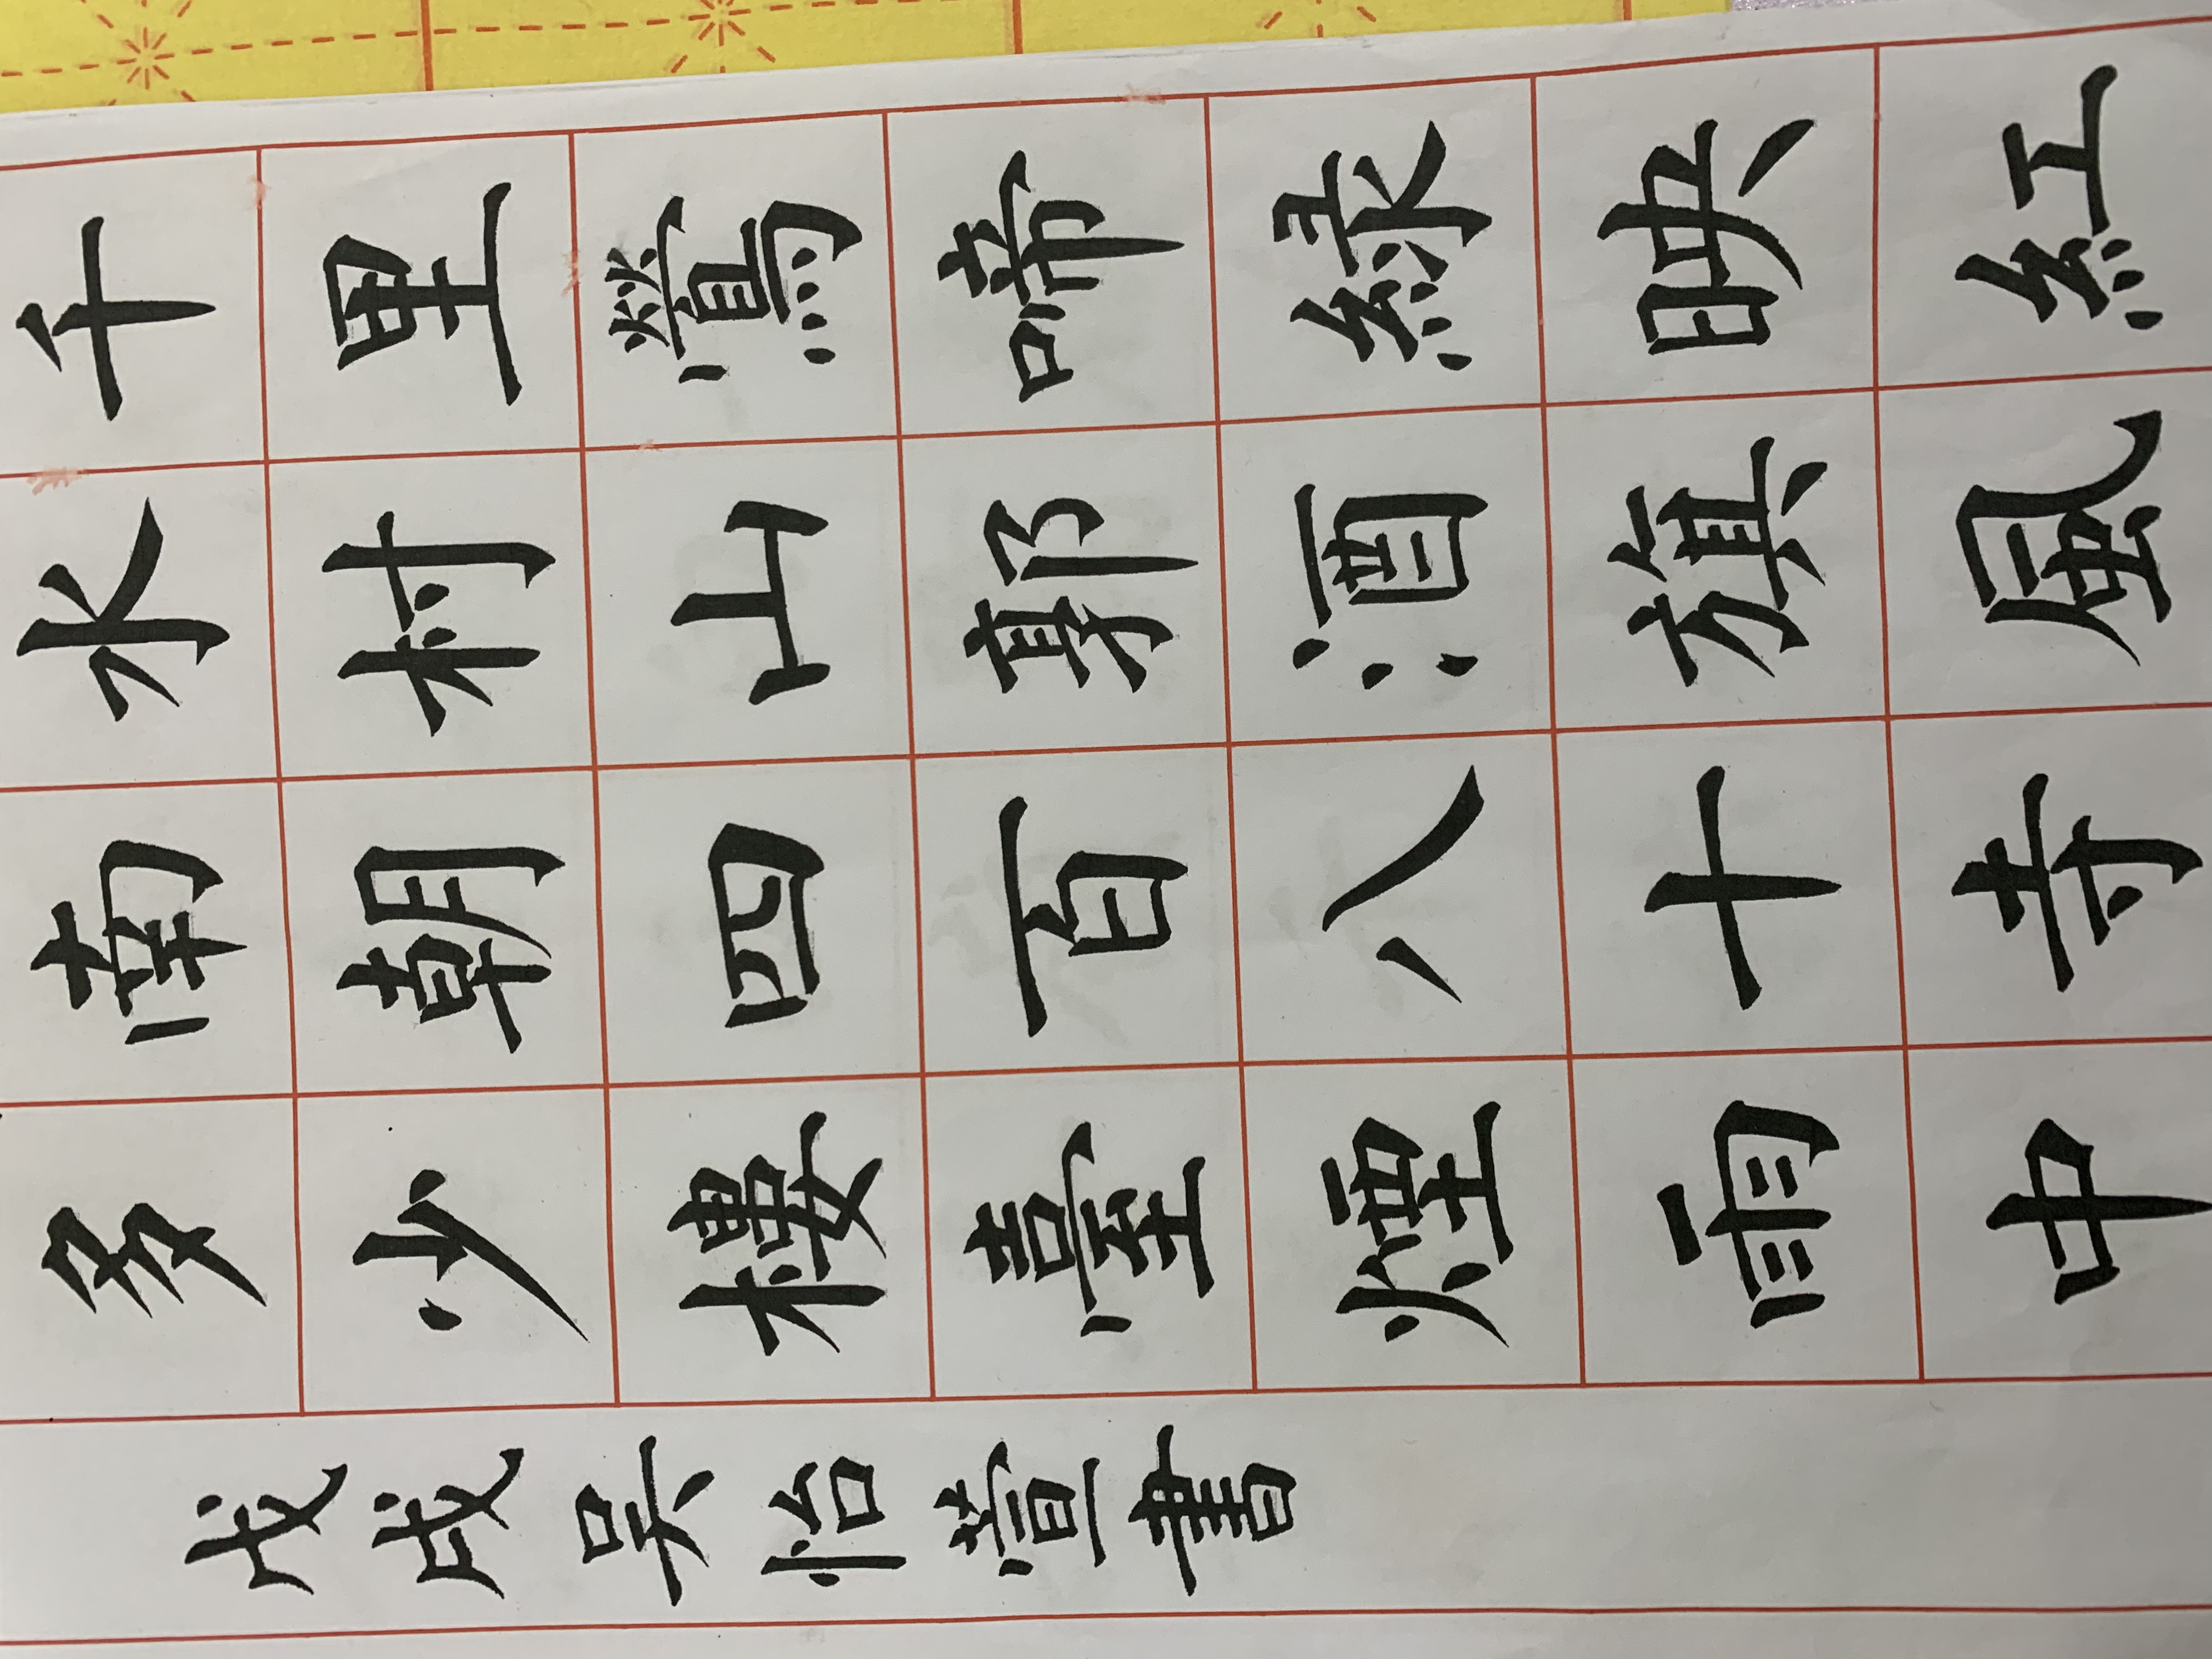 千里鶯啼緑映紅
水村山郭酒旗風
南朝四百八十寺
多少樓臺煙雨中
戊戌吴怡萱書